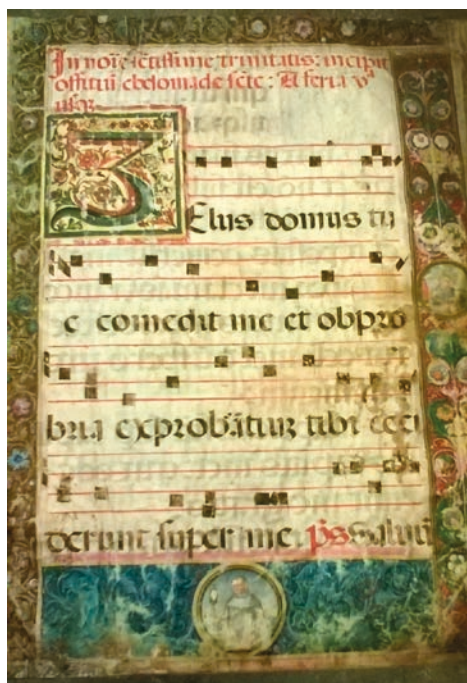 In noie sctissime trinitatis: incipit
offitiu ebdomade scte: A feria va
usqz
ZElus domus tu
e comedit me et obpro
bria exprobatiuz tibi ceci
derunt super me. ps Saluu